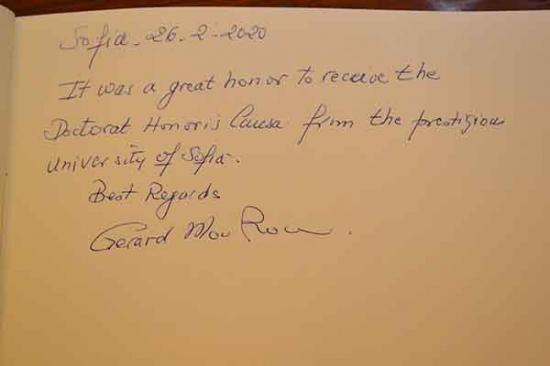 Sofia - 26 - 2 - 2020
It was a great honor to receive the
Doctorat Honoris Causa from the prestigious
University of Sofia.
Best Regards
Gerard Mou Rou